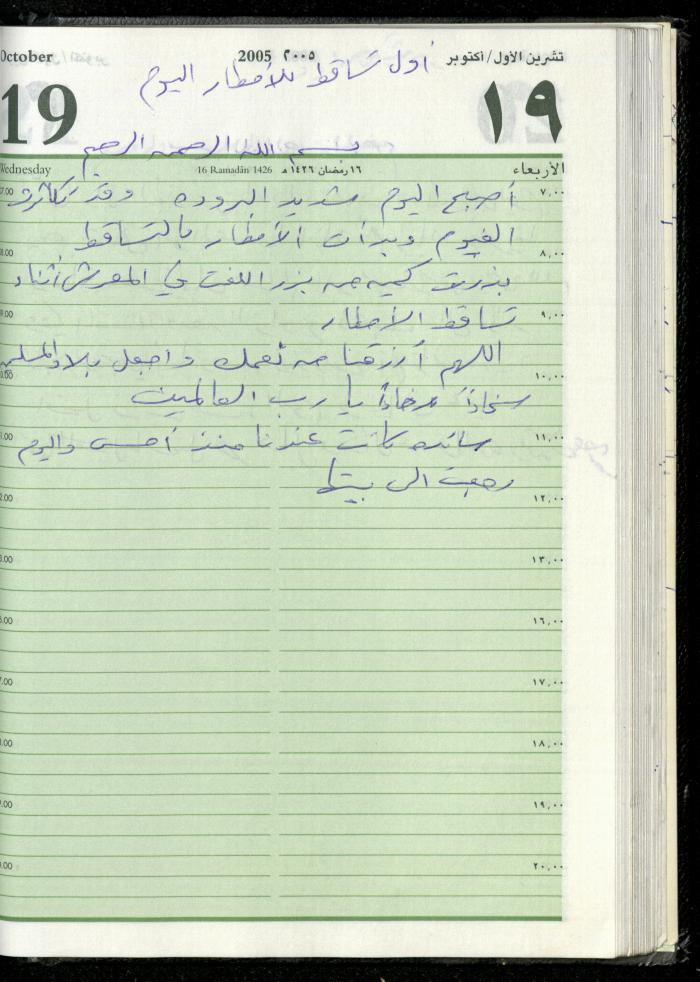 October 2005 ٢٠٠٥ تشرين الأول/أكتوبر
أول تساقط للأمطار اليوم
19 ١٩
بسم الله الرحمن الرحيم
Wednesday 16 Ramadān 1426 ١٦ رمضان ١٤٢٦ هـ الأربعاء
7.00 أصبح اليوم شديد البروده وقد تكاثرت ٧,٠٠
الغيوم وبدأت الأمطار بالتساقط
8.00 ٨,٠٠
بذرت كميه من بزر اللفت في المعرش أثناء
9.00 تساقط الأمطار ٩,٠٠
اللهم أرزقنا من نعمك واجعل بلاد المسلمين
10.00 ١٠,٠٠
سخاءً رخاءً يا رب العالمين
11.00 سانده كانت عندنا منذ أمس واليوم ١١,٠٠
رجعت الى بيتها
12.00 ١٢,٠٠
13.00 ١٣,٠٠
16.00 ١٦,٠٠
17.00 ١٧,٠٠
18.00 ١٨,٠٠
19.00 ١٩,٠٠
20.00 ٢٠,٠٠